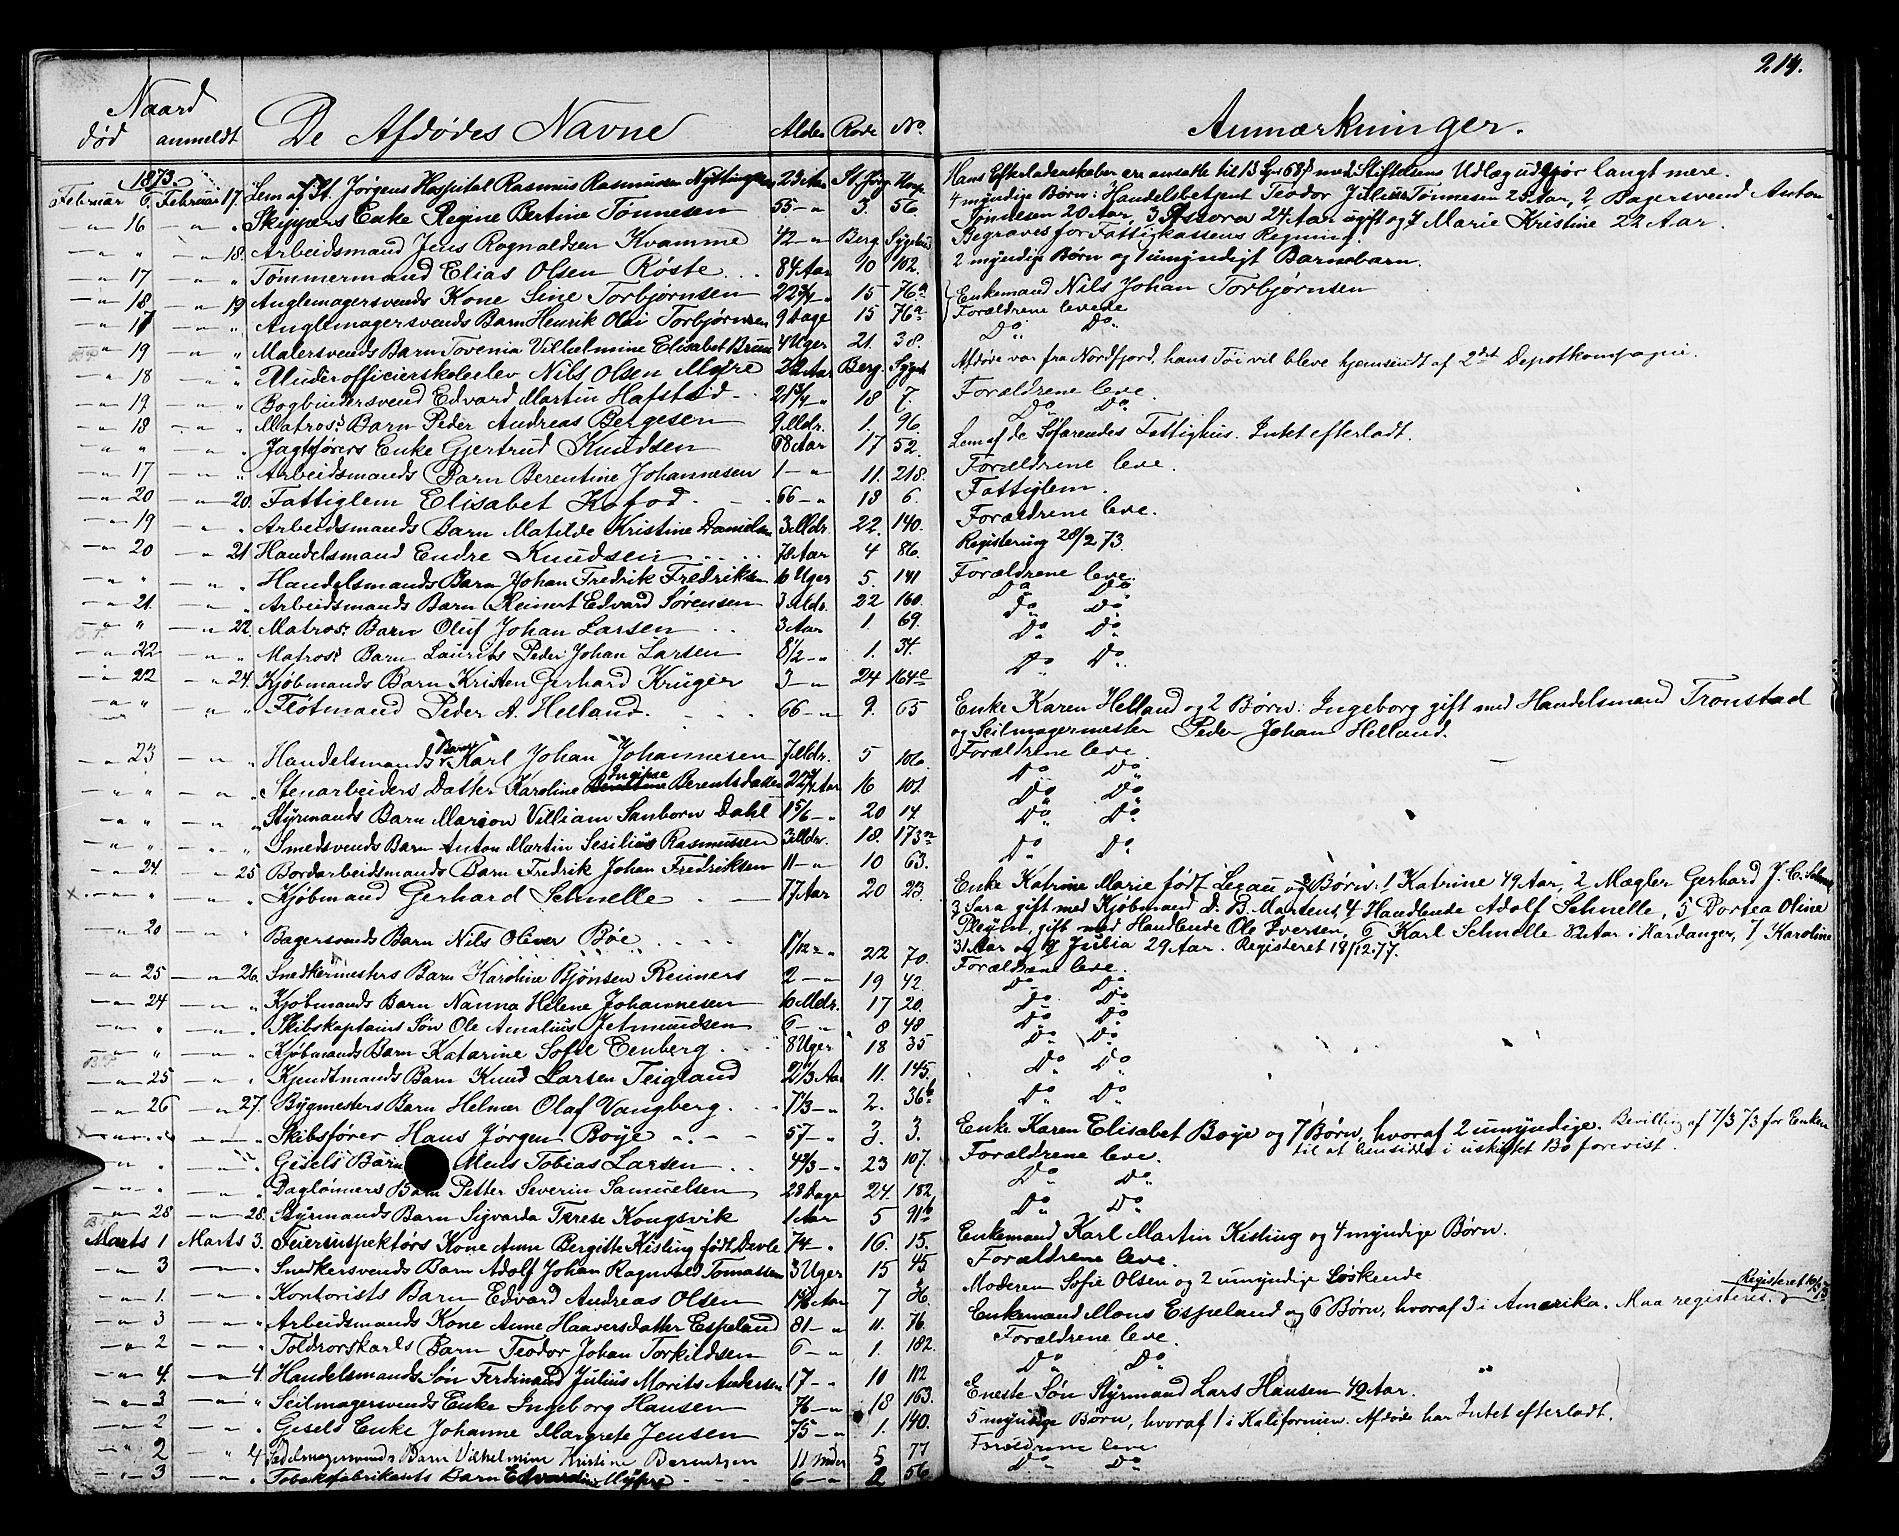 214.
Naar d
død anmeldt De Afdødes Navne Alder Rode No. Anmærkninger.
1873.
Februar 6. Februar 17. Lem af St. Jørgens Hospital Rasmus Rasmussen 23 Aar St. Jørg. Hosp.
Hans Efterladenskaber ere ansatte til 13 Sp. 68 β med Stiftelsens Udlæg udgjør langt mere.
—"— 16 —"— " Skippers Enke Regine Bertine Tønnesen 55 —"— 3. 56.
4 myndige Børn: Handelsbetjent Teodor Julius Tønnesen 25 Aar, 2, Bagersvend Anton
Tønnesen 20 Aar, 3 Astora 24 Aar ugift og 4 Marie Kristine 22 Aar.
—"— " —"— 18. Arbeidsmand Jens Rognaldsen Kvamme 42 —"— Berg. Sygehus
Begraves for Fattigkassens Regning.
—"— 17 —"— " Tømmermand Elias Olsen Røste 84 Aar 10 102.
2 myndige Børn og 1 umyndigt Barnebarn.
—"— 18 —"— 19. Anglemagersvends Kone Sine Torbjørnsen 22 3/4 —"— 15 76a
Enkemand Nils Johan Torbjørnsen
—"— 17 —"— " Anglemagersvends Barn Henrik Olai Torbjørnsen 9 Dage 15 76a
Forældrene levede
—"— 19 —"— " Malersvends Barn Tovenia Vilhelmine Elisabet Bruun 4 Uger 21. 38.
Do. Do.
—"— 18 —"— " Underofficierskoleelev Nils Olsen Myre 22 Aar Berg. Sygeh.
Afdøde var fra Nordfjord, hans Tøi vil bleve hjemsendt af 2det Depotkompagni.
—"— 19 —"— " Bogbindersvend Edvard Martin Hafstad 21 3/4 —"— 18 7.
Forældrene leve.
—"— 18 —"— " Matros's Barn Peder Andreas Bergesen 9 Mdr. 1. 96.
Do. Do.
—"— " —"— " Jagtførers Enke Gjertrud Knudsen 68 Aar 17 52.
Lem af de Søfarendes Fattighus. Intet efterladt.
—"— 17 —"— " Arbeidsmands Barn Berentine Johannesen 1 —"— 11. 218.
Forældrene leve.
—"— 20 —"— 20. Fattiglem Elisabet Kofod 66 —"— 18 6.
Fattiglem.
—"— 19 —"— " Arbeidsmands Barn Matilde Kristine Danielsen 3 Mdr. 22. 140.
Forældrene leve.
—"— 20 —"— 21. Handelsmand Endre Knudsen 78 Aar 4 86.
Registering 28/2 73.
—"— " —"— " Handelsmands Barn Johan Fredrik Fredriksen 6 Uger 5. 141
Forældrene leve.
—"— 21. —"— " Arbeidsmands Barn Reinert Edvard Sørensen 3 Mdr. 22 160.
Do. Do.
—"— " —"— 22. Matros's Barn Oluf Johan Larsen 3 Aar 1. 69.
Do. Do.
—"— 22 —"— " Matros's Barn Laurits Peder Johan Larsen 8 1/2 —"— 1. 34.
Do. Do.
—"— 22 —"— 24. Kjøbmands Barn Kristen Gerhard Krüger 3 —"— 24 164c
Do. Do.
—"— " —"— " Fløtmand Peder A. Helland 66 —"— 9. 65
Enke Karen Helland og 2 Børn: Ingeborg gift med Handelsmand Tronstad
og Seilmagermester Peder Johan Helland.
—"— 23 —"— " Handelsmands Barn Karl Johan Johannesen 7 Mdr. 5 106.
Forældrene leve
—"— " —"— " Stenarbeiders Datter Karoline Berentsdatter 22 3/4 Aar 16 101.
Do. Do.
—"— " —"— " Styrmands Barn Marion Villiam Sanborn Dahl 1 5/6 —"— 20 14
Do. Do.
—"— " —"— " Smedsvends Barn Anton Martin Sesilius Rasmussen 3 Mdr. 18. 173a
Do. Do.
—"— 24 —"— 25 Bordarbeidsmands Barn Fredrik Johan Fredriksen 11 —"— 10 63.
Do. Do.
—"— " —"— " Kjøbmand Gerhard Schnelle 77 Aar 20 23.
Enke Katrine Marie født Legau og 8 Børn: 1 Katrine 49 Aar, 2 Mægler Gerhard J. C. Schnelle
3, Sara gift med Kjøbmand D. B. Martens, 4, Handlende Adolf Schnelle, 5, Dortea Oline
gift med Handlende Ole Iversen, 6 Karl Schnelle 32 Aar i Hardanger, 7, Karoline
31 Aar og 8 Julia 29 Aar. Registeret 18/12.77.
—"— 20 —"— " Bagersvends Barn Nils Oliver Bøe 1 1/12 —"— 22 70.
Forældrene leve.
—"— 25 —"— 26. Snedkermesters Barn Karoline Bjønsen Reimers 2 —"— 19 42.
Do. Do.
—"— 24 —"— " Kjøbmands Barn Nanna Helene Johannesen 6 Mdr. 17 20.
Do. Do.
—"— " —"— " Skibskaptains Søn Ole Amalius Jetmundsen 6 —"— 8 48
Do. Do.
—"— " —"— " Kjøbmands Barn Katarine Sofie Eenberg 8 Uger 18 35
Do. Do.
—"— 25 —"— " Kjendtmands Barn Knud Larsen Teigland 2 1/3 Aar 11. 145.
Do. Do.
—"— 26 —"— 27. Bygmesters Barn Helmer Olaf Vangberg 7 1/3 —"— 2. 36b
Do. Do.
—"— " —"— " Skibsfører Hans Jørgen Boye 57 —"— 3. 3.
Enke Karen Elisabet Boye og 7 Børn, hvoraf 2 umyndige. Bevilling af 7/3 73 for Enken
til at hensidde i uskiftet Bo forevist.
—"— " —"— " Gjsels Barn Mons Tobias Larsen 4 2/3 —"— 23 107.
Forældrene leve.
—"— " —"— " Daglønners Barn Petter Severin Samuelsen 28 Dage 24. 182
Do. Do.
—"— 28 —"— 28. Styrmands Barn Sigvarda Terese Kongsvik 1 Aar 5 91b
Do. Do.
Marts 1 Marts 3. Feierinspektørs Kone Anne Bergitte Kisling født Devle 74 —"— 16. 15.
Enkemand Karl Martin Kisling og 4 myndige Børn.
—"— 3 —"— " Snedkersvends Barn Adolf Johan Ragnvald Tomassen 3 Uger 15 45
Forældrene leve.
—"— 1. —"— " Kontorists Barn Edvard Andreas Olsen 1 5/6 Aar 7 36.
Moderen Sofie Olsen og 2 umyndige Søskende
—"— 3 —"— " Arbeidsmands Kone Anne Haaversdatter Espeland 81 —"— 11. 76.
Enkemand Mons Espeland og 6 Børn, hvoraf 3 i Amerika. Maa registeres.
—"— 2 —"— " Toldrorskarls Barn Teodor Johan Torkildsen 6 —"— 1. 182.
Forældrene leve.
—"— 4. —"— 4. Handelsmands Søn Ferdinand Julius Morits Andersen 17 —"— 10 112
Do. Do.
—"— 3 —"— " Seilmagersvends Enke Ingeborg Hansen 76 —"— 18 163.
Eneste Søn Styrmand Lars Hansen 49 Aar.
—"— 2 —"— " Gjsels Enke Johanne Margrete Jensen 75 —"— 1. 140.
5 myndige Børn, hvoraf 1 i Kalifornien. Afdøde har Intet efterladt.
—"— 2 —"— 4 Sadelmagersvends Barn Vilhelmine Kristine Berentsen 11 Mdr 5 77
Forældrene leve
—"— 3 —"— " Tobaksfabrikants Barn Edvardine Myhre 6 —"— 2 56
Do. Do.